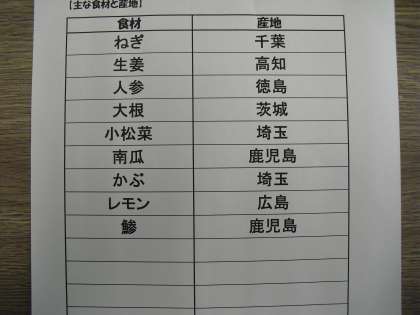 【主な食材と産地】
食材 産地
ねぎ 千葉
生姜 高知
人参 徳島
大根 茨城
小松菜 埼玉
南瓜 鹿児島
かぶ 埼玉
レモン 広島
鯵 鹿児島